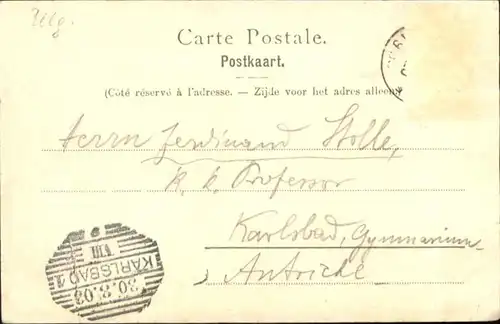 Belg.
Carte Postale.
Postkaart.
(Côté réservé à l'adresse. — Zijde voor het adres alleen)
Herrn Ferdinand Stolle,
K. k. Professor
Karlsbad, Gymnasium
Autriche
KARLSBAD 1
30.8.03
VIII